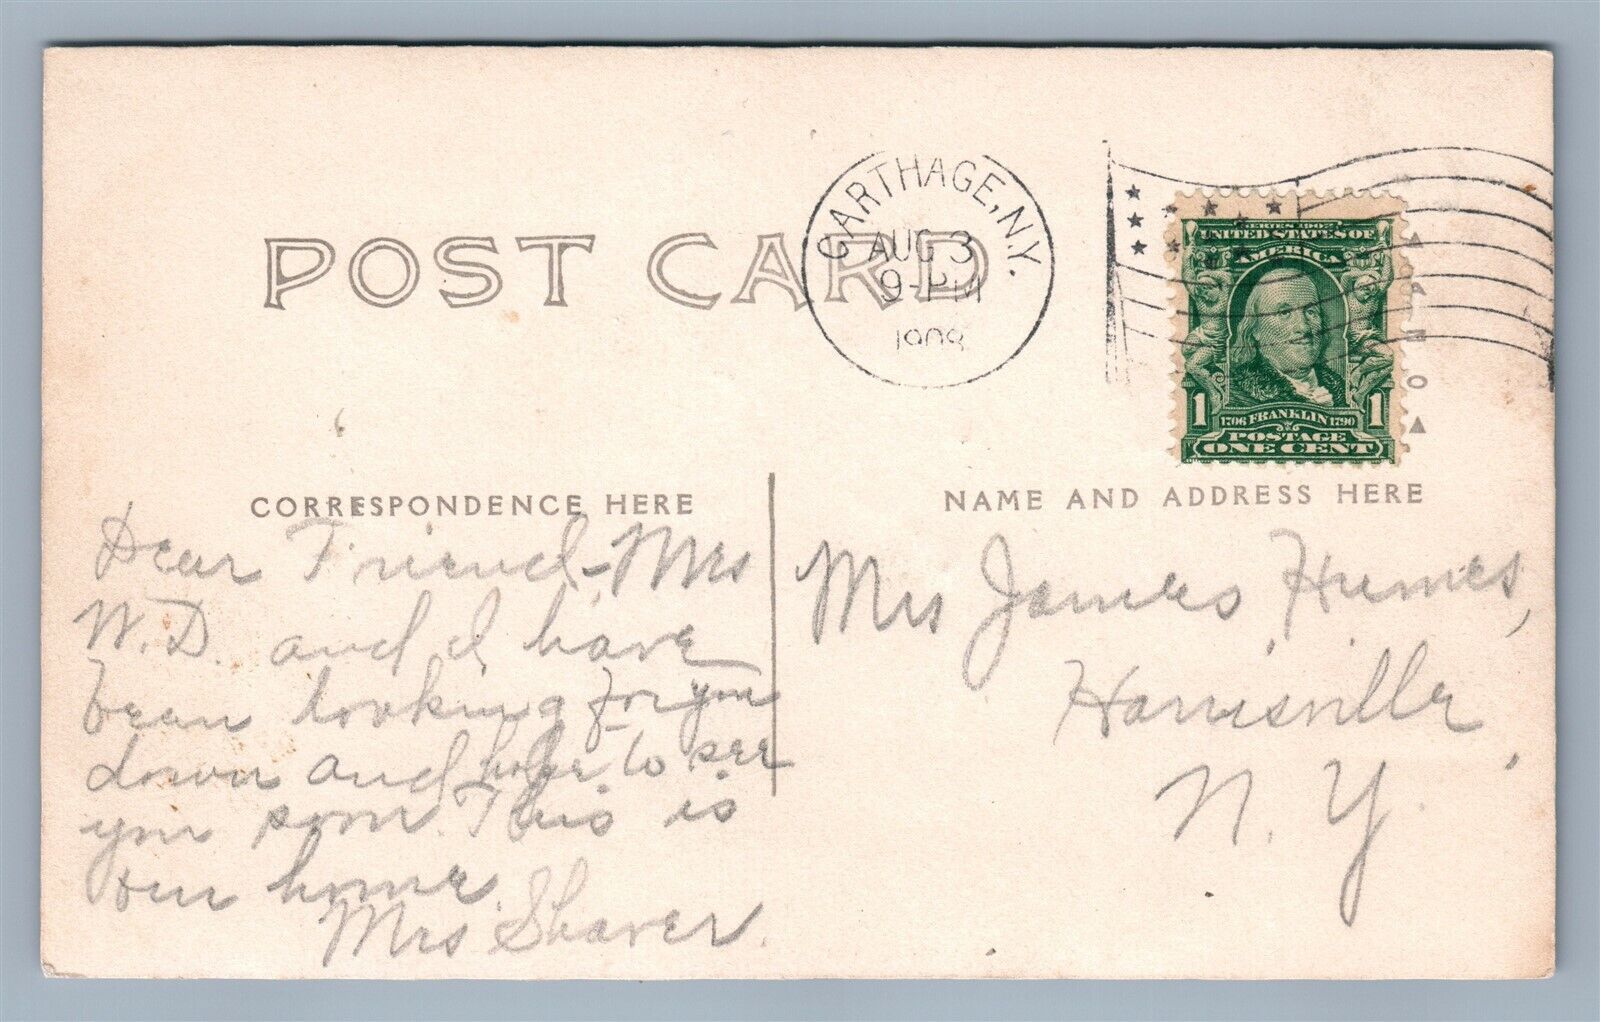 POST CARD
CARTHAGE, N.Y.
AUG 3
9-PM
1908
SERIES 1902
UNITED STATES OF
AMERICA
1 1706 FRANKLIN 1790 1
POSTAGE
ONE CENT
CORRESPONDENCE HERE
Dear Friend - Mrs
W. D. and I have
been looking for you
down and hope to see
you soon. This is
our home.
Mrs Shaver.
NAME AND ADDRESS HERE
Mrs James Humes,
Harrisville,
N. Y.